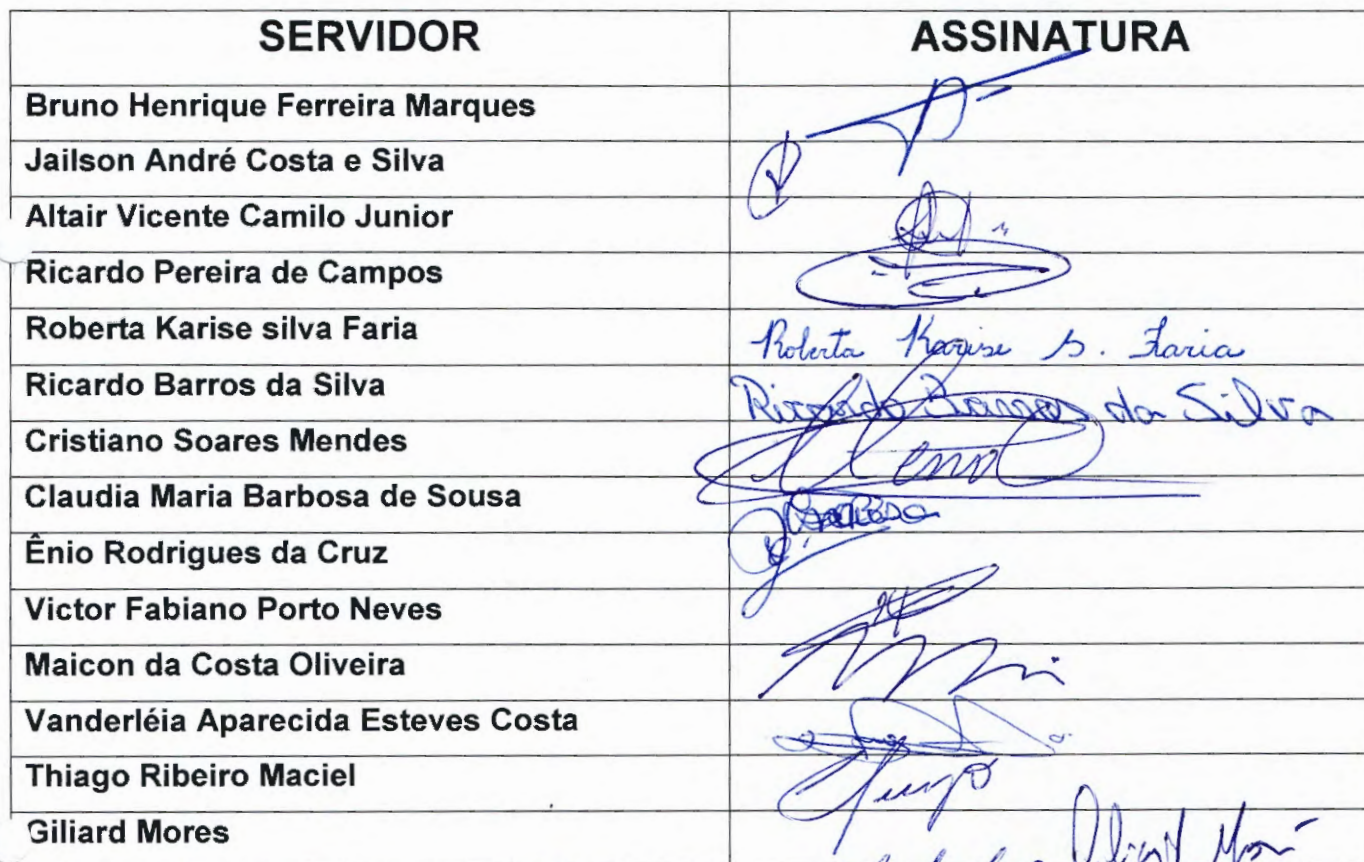 SERVIDOR ASSINATURA
Bruno Henrique Ferreira Marques
Jailson André Costa e Silva
Altair Vicente Camilo Junior
Ricardo Pereira de Campos
Roberta Karise silva Faria Roberta Karise S. Faria
Ricardo Barros da Silva Ricardo Barros da Silva
Cristiano Soares Mendes
Claudia Maria Barbosa de Sousa
Ênio Rodrigues da Cruz
Victor Fabiano Porto Neves
Maicon da Costa Oliveira
Vanderléia Aparecida Esteves Costa
Thiago Ribeiro Maciel
Giliard Mores